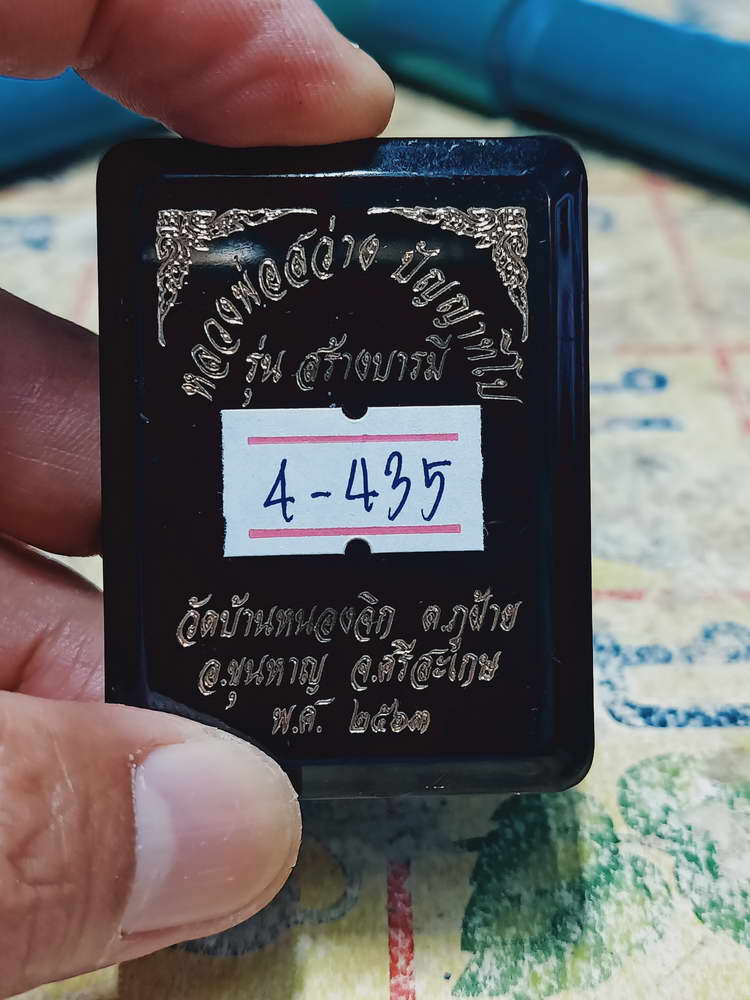 หลวงพ่อสว่าง ปัญญาทีโป
รุ่น สร้างบารมี
4-435
วัดบ้านหนองจิก ต.ภูฝ้าย
อ.ขุนหาญ จ.ศรีสะเกษ
พ.ศ. ๒๕๖๓